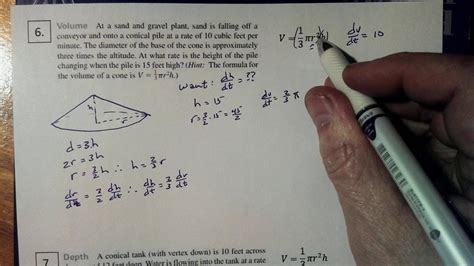 6. Volume At a sand and gravel plant, sand is falling off a
conveyor and onto a conical pile at a rate of 10 cubic feet per
minute. The diameter of the base of the cone is approximately
three times the altitude. At what rate is the height of the pile
changing when the pile is 15 feet high? (Hint: The formula for
the volume of a cone is V = 1/3 πr²h.)
V = (1/3 πr²)
dv/dt = 10
want: dh/dt = ??
h = 15
r = 3/2 · 15 = 45/2
dv/dt = 2/3 π
h
r
d = 3h
2r = 3h
r = 3/2 h ∴ h = 2/3 r
dr/dt = 3/2 dh/dt ∴ dh/dt = 2/3 dr/dt
7. Depth A conical tank (with vertex down) is 10 feet across
12 feet deep. Water is flowing into the tank at a rate
V = 1/3 πr²h